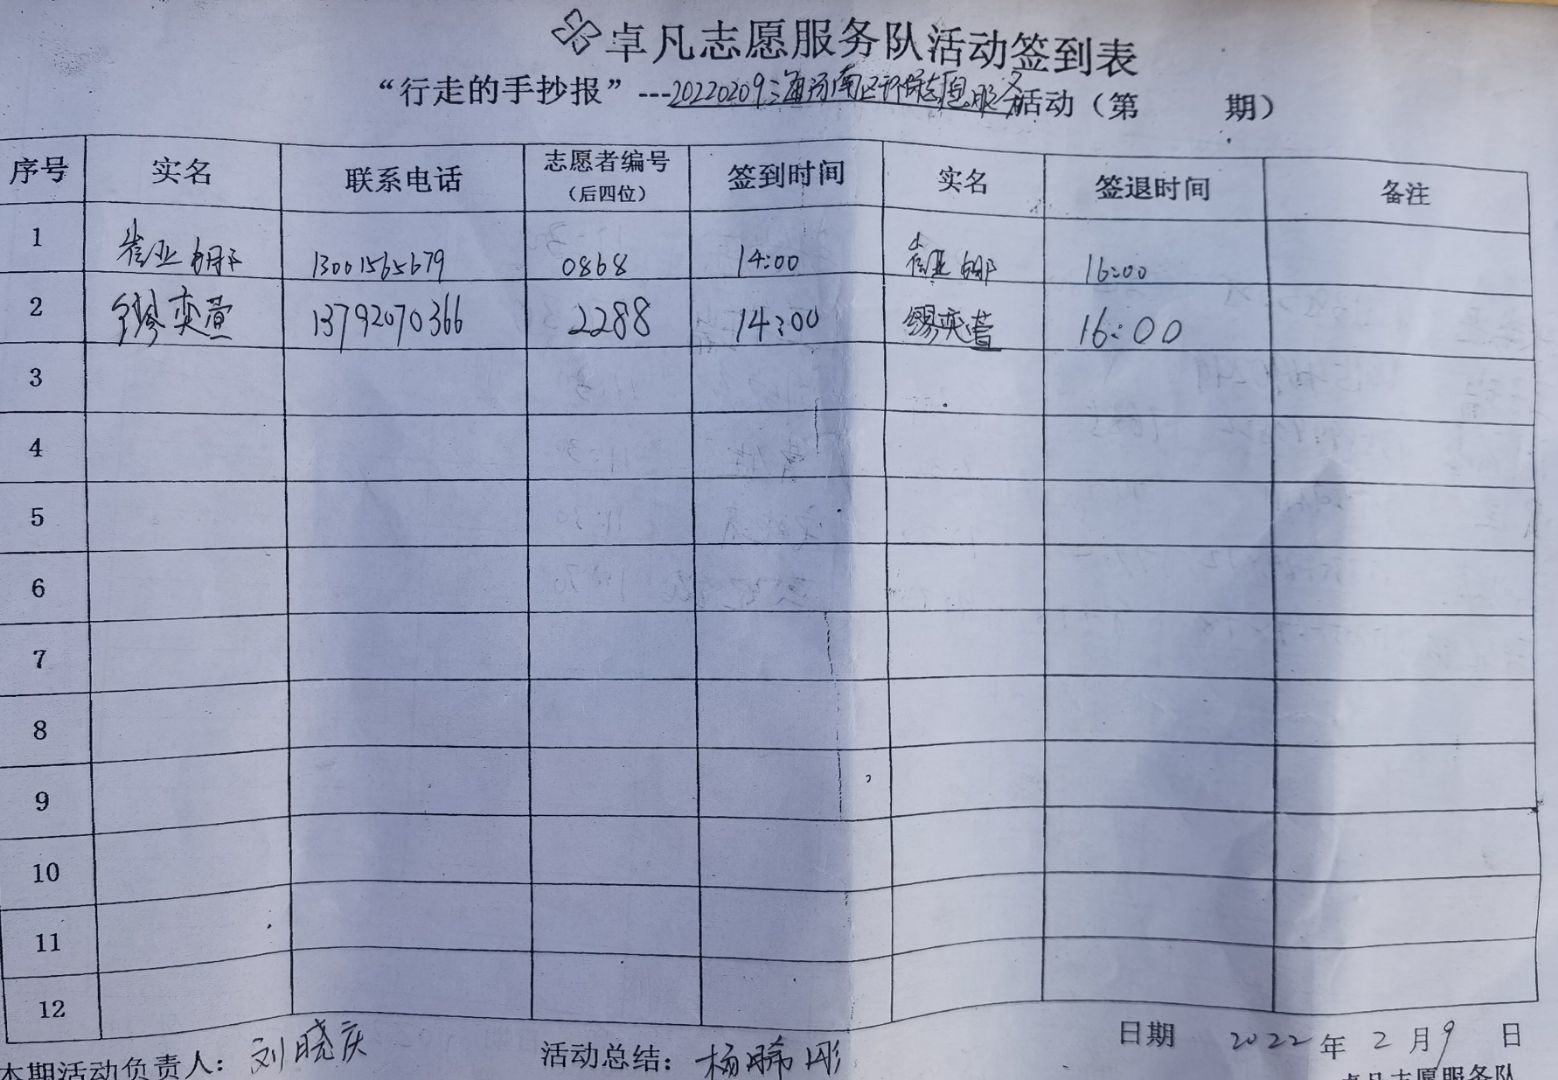 卓凡志愿服务队活动签到表
“行走的手抄报”---20220209上海河南区环保志愿服务活动（第 期）
序号 实名 联系电话 志愿者编号（后四位） 签到时间 实名 签退时间 备注
1 崔亚娜 13001565679 0868 14:00 崔亚娜 16:00
2 奕萱 13792070366 2288 14:00 奕萱 16:00
3
4
5
6
7
8
9
10
11
12
本期活动负责人：刘晓庆 活动总结：杨晞彤 日期 2022年2月9日
卓凡志愿服务队